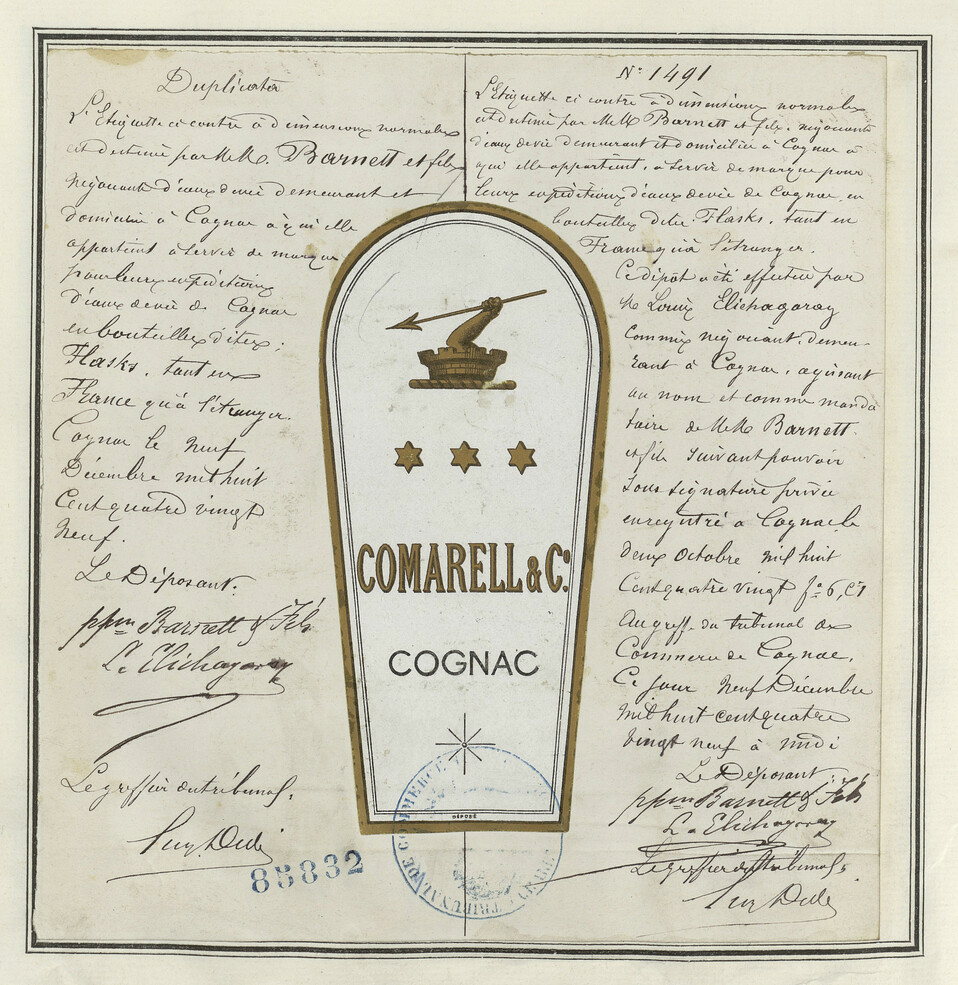 Duplicata
L'Etiquette ci contre à dimensions normales
est destinée par M.M. Barnett et fils
négociants d'eaux de vie demeurant et
domiciliés à Cognac à qui elle
appartient à servir de marque
pour leurs expéditions
d'eaux de vie de Cognac
en bouteilles dites;
Flasks, tant en
France qu'à l'étranger.
Cognac le neuf
Décembre mil huit
Cent quatre vingt
neuf.
Le Déposant:
ppon Barnett & Fils
Ls Elichagaray
Le greffier du tribunal,
N° 1491
L'Etiquette ci contre à dimensions normales
est destinée par M.M. Barnett et fils, négociants
d'eaux de vie demeurant et domiciliés à Cognac à
qui elle appartient, à servir de marque pour
leurs expéditions d'eaux de vie de Cognac, en
bouteilles dites Flasks, tant en
France qu'à l'étranger.
Ce dépôt a été effectué par
M Louis Elichagaray
Commis négociant, demeu-
rant à Cognac, agissant
au nom et comme manda
taire de M.M. Barnett
et fils suivant pouvoir
sous signature privée
enregistré à Cognac le
deux Octobre mil huit
Cent quatre vingt f° 6, Ct
Au greffe du tribunal de
Commerce de Cognac,
Ce jour neuf Décembre
mil huit cent quatre
vingt neuf à midi
Le Déposant
ppon Barnett & Fils
Ls Elichagaray
Le greffier du tribunal.
COMARELL & Co.
COGNAC
DÉPOSÉ
TRIBUNAL DE COMMERCE
85832